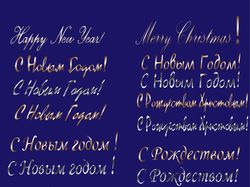 Happy New Year!
С Новым Годом!
С Новым Годом!
С Новым Годом!
С Новым годом!
С Новым годом!
Merry Christmas!
С Новым Годом!
С Новым Годом!
С Рождеством Христовым!
С Рождеством Христовым!
С Рождеством!
С Рождеством!